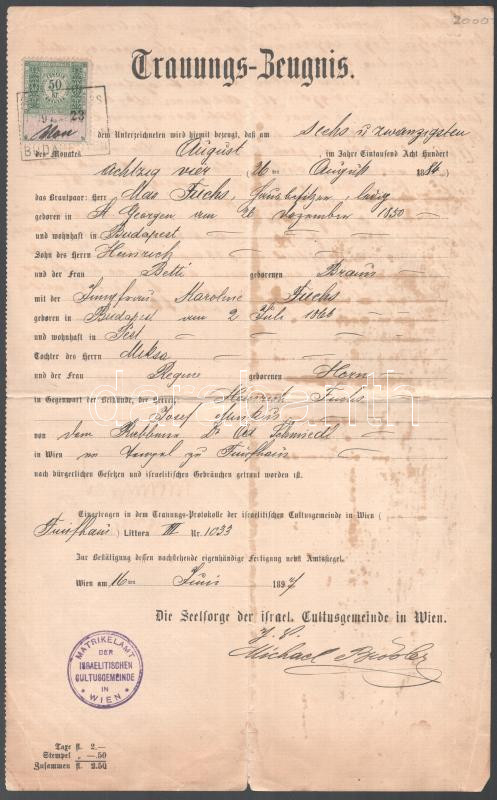 2000
50
23
BUDA
Trauungs-Zeugnis.
dem Unterzeichneten wird hiemit bezeugt, daß am Sechs u zwanzigsten
des Monates August im Jahre Eintausend Acht Hundert
achtzig vier (26ten August 1884
das Brautpaar: Herr Max Fuchs, Hausbesitzer, ledig
geboren in St Georgen am 26 Dezember 1850
und wohnhaft in Budapest
Sohn des Herrn Heinrich
und der Frau Betti geborenen Braun
mit der Jungfrau Karoline Fuchs
geboren in Budapest am 2 Juli 1866
und wohnhaft in Pest
Tochter des Herrn Miksa
und der Frau Regine geborenen Horn
in Gegenwart der Beistände, der Herren Heinrich Fuchs
Josef Munkus
von dem Rabbiner Dr Ad. Schmiedl
in Wien im Tempel zu Fünfhaus
nach bürgerlichen Gesetzen und israelitischen Gebräuchen getraut worden ist.
Eingetragen in dem Trauungs-Protokolle der israelitischen Cultusgemeinde in Wien (
Fünfhaus) Littera III Nr. 1033
Zur Bestätigung dessen nachstehende eigenhändige Fertigung nebst Amtssiegel.
Wien am 16ten Juni 1897
Die Seelsorge der israel. Cultusgemeinde in Wien.
Michael
MATRIKELAMT
DER
ISRAELITISCHEN
CULTUSGEMEINDE
IN
WIEN
Taxe fl. 2.—
Stempel „ —.50
Zusammen fl. 2.50
darabanth